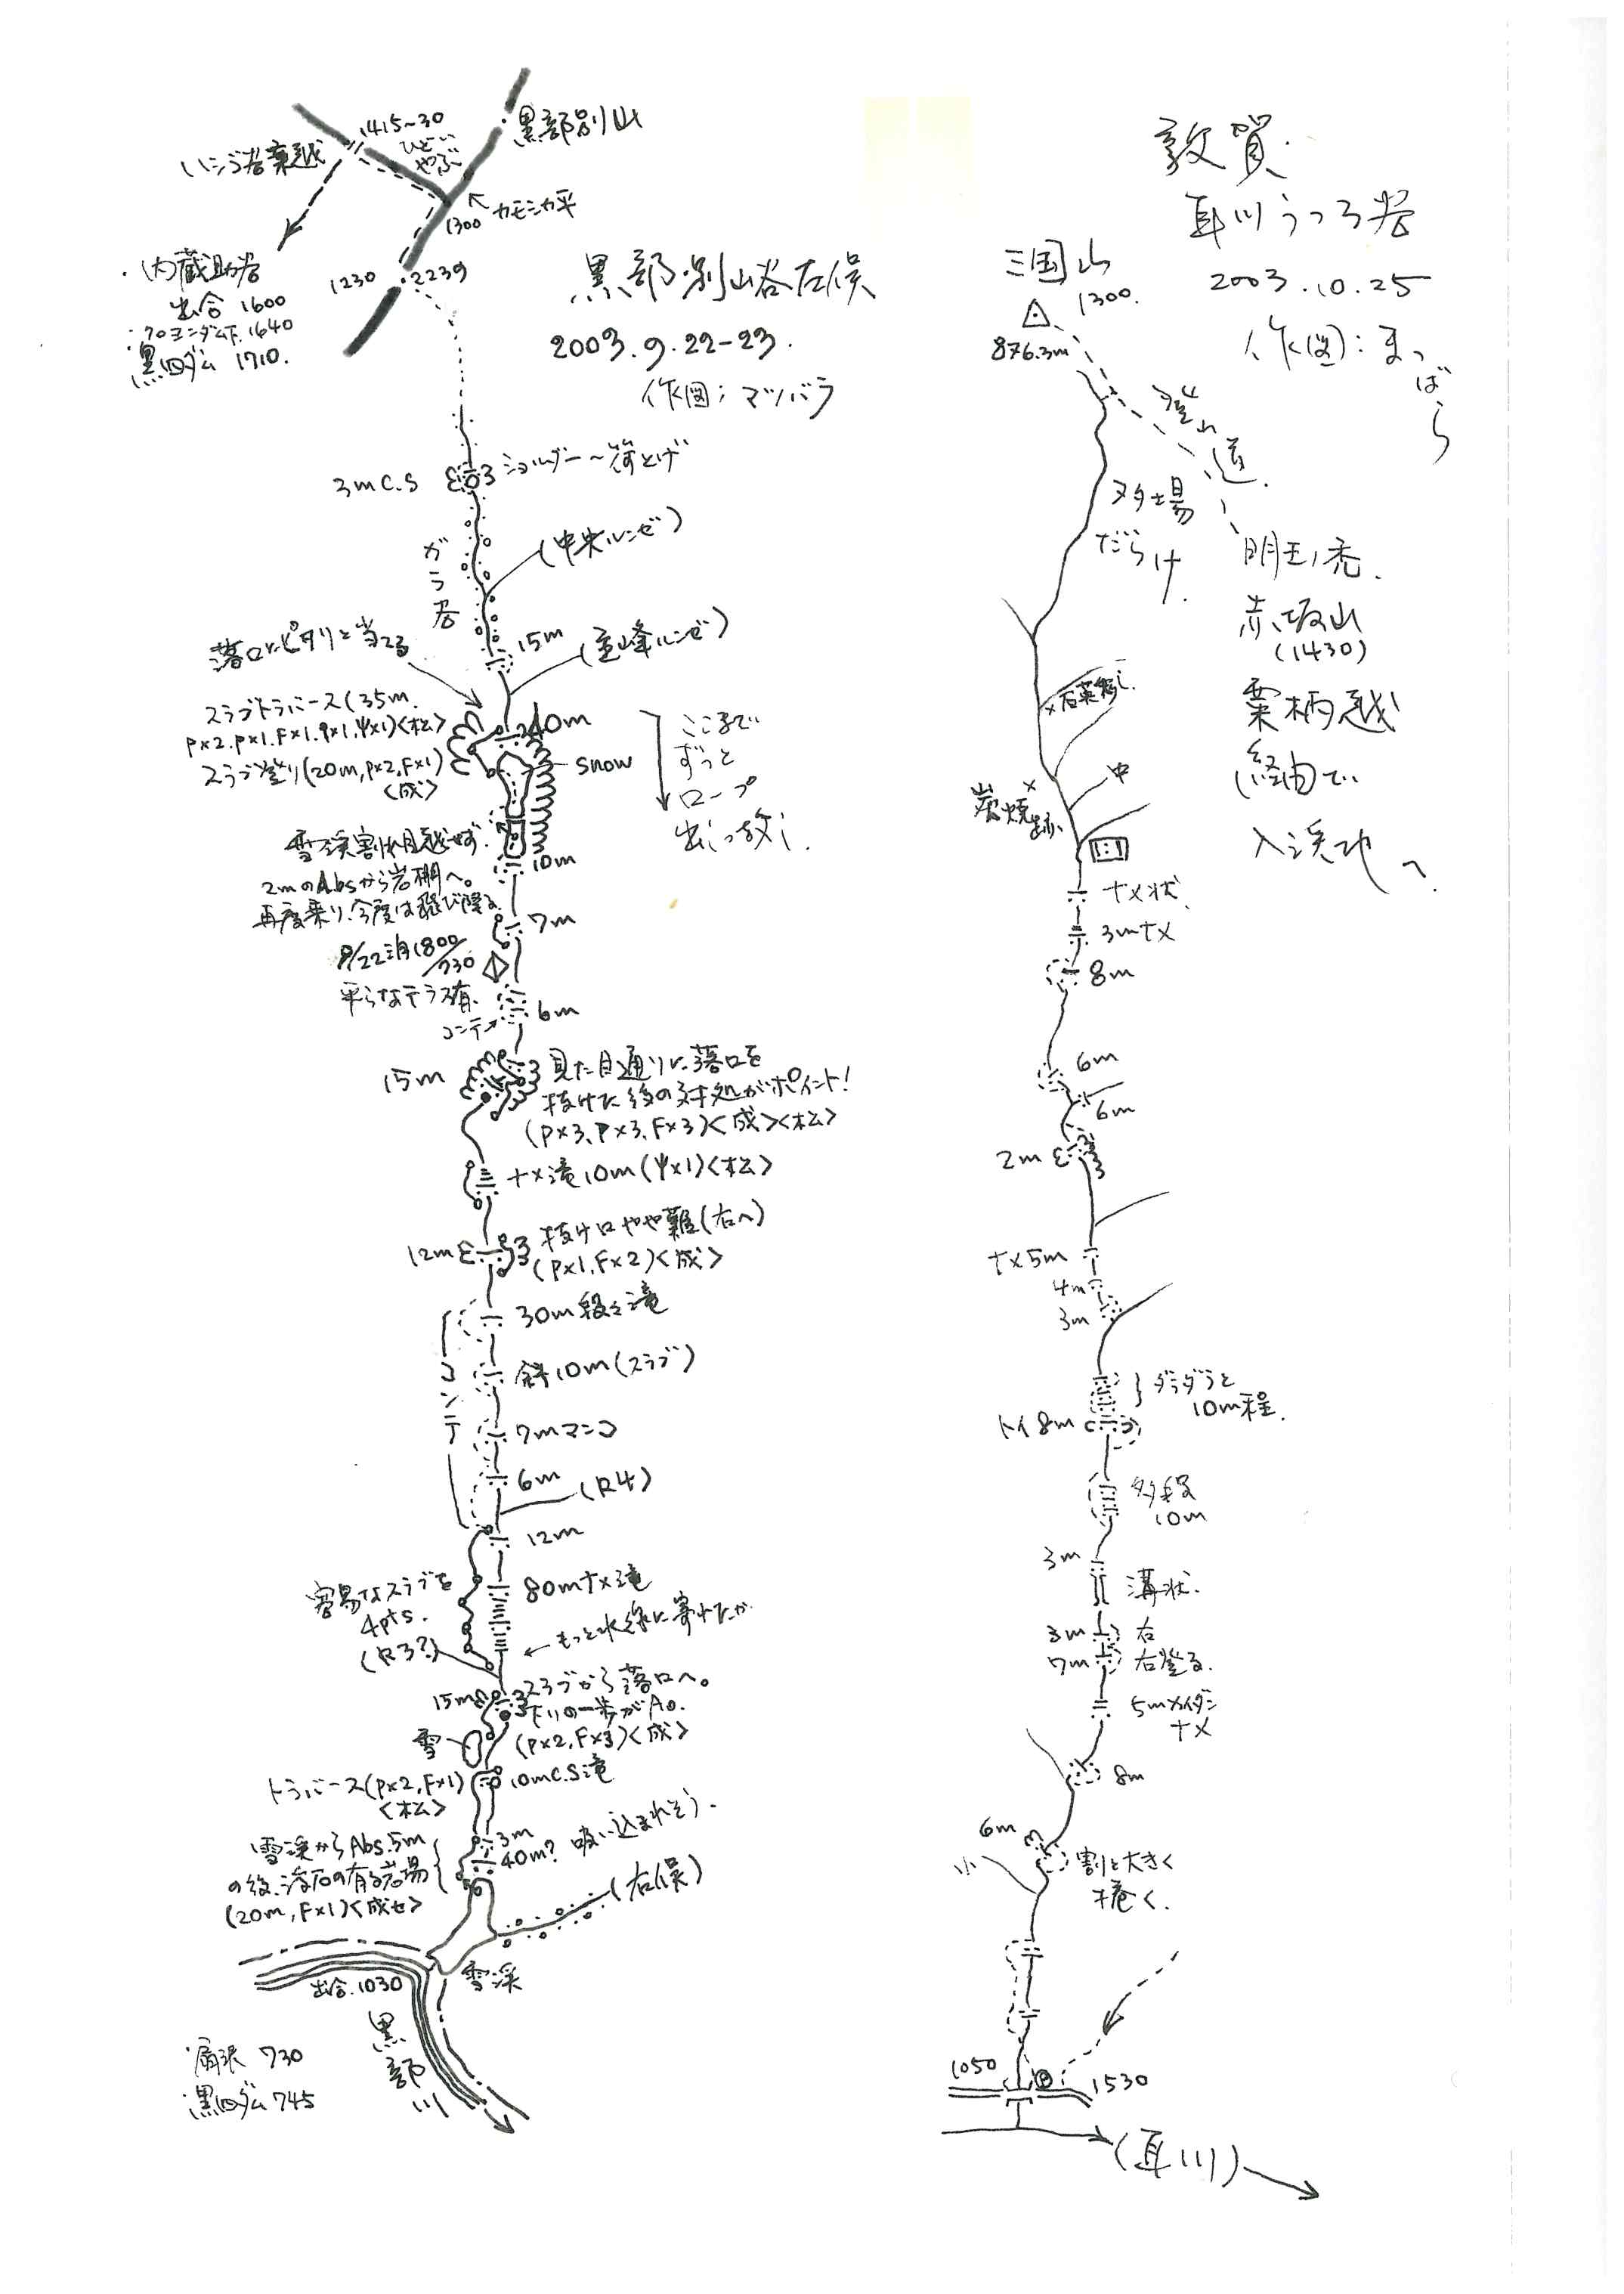 黒部別山谷左俣
2003.9.22-23.
作図：マツバラ
黒部別山
1415~30
ひどい
やぶ
ハシゴ谷乗越
カモシカ平
1300
1230
2239
・内蔵助谷
出合 1600
・クロヨンダム下 1640
・黒四ダム 1710.
3m C.S
ショルダー～荷上げ
ガラ谷
(中央ルンゼ)
15m
(主峰ルンゼ)
落口にピタリと当る
スラブトラバース(35m.
<松>
40m
スラブ登り(20m, P×2, F×1)
<成>
snow
ここまで
ずっと
ロープ
出しっ放し.
雪渓割れ目越せず.
2mのAbsから岩棚へ。
再度乗り、今度は飛び降る.
10m
7m
9/22泊 1800
/730
平らなテラス有.
コンテ→
6m
15m
見た目通りに落口を
抜けた後の対処がポイント!
(P×3, P×3, F×3)<成><松>
ナメ滝10m(Ψ×1)<松>
12m
抜け口やや難(右へ)
(P×1, F×2)<成>
30m段々滝
コンテ
斜10m(スラブ)
7mマンコ
6m
(R4)
12m
容易なスラブを
4pts.
(R3?)
80mナメ滝
←もっと水線に寄れたか
15m
スラブから落口へ。
下りの一歩がA0.
(P×2, F×3)<成>
雪
トラバース(P×2, F×1)
<松>
10mC.S滝
3m
40m? 吸い込まれそう.
雪渓からAbs.5m
の後、浮石の有る岩場
(20m, F×1)<成セ>
(右俣)
雪渓
出合.1030
黒部川
・扇沢 730
・黒四ダム 745
敦賀
耳川うつろ谷
2003.10.25
作図：まつばら
三国山
1300.
876.3m
登山道.
ヌタ場
だらけ.
明王ノ禿.
赤坂山
(1430)
粟柄越
経由で
入渓地へ.
×石英多し.
中
炭焼跡
×
ナメ状.
3mナメ
8m
6m
6m
2m
ナメ5m
4m
3m
ダラダラと
10m程.
トイ8m
多段
10m
3m
溝状.
3m 右
7m 右登る.
5mカイダン
ナメ
8m
6m
小
割と大きく
捲く.
1050
P
1530
(耳川)